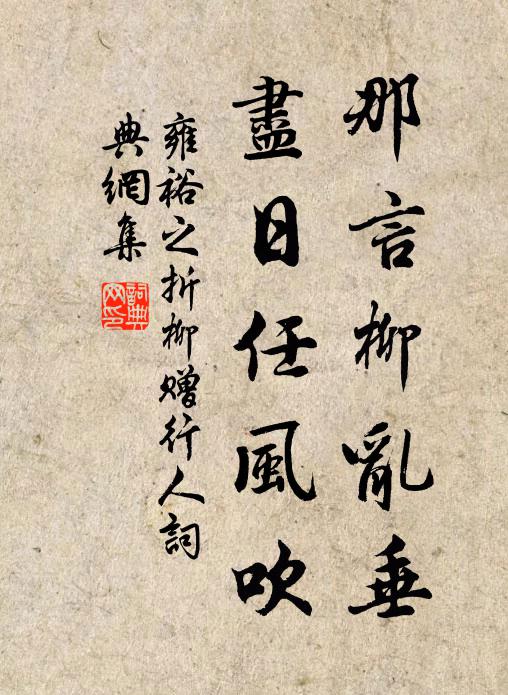 那言柳亂垂
盡日任風吹
雍裕之折柳贈行人詞
典網集
詞典網印